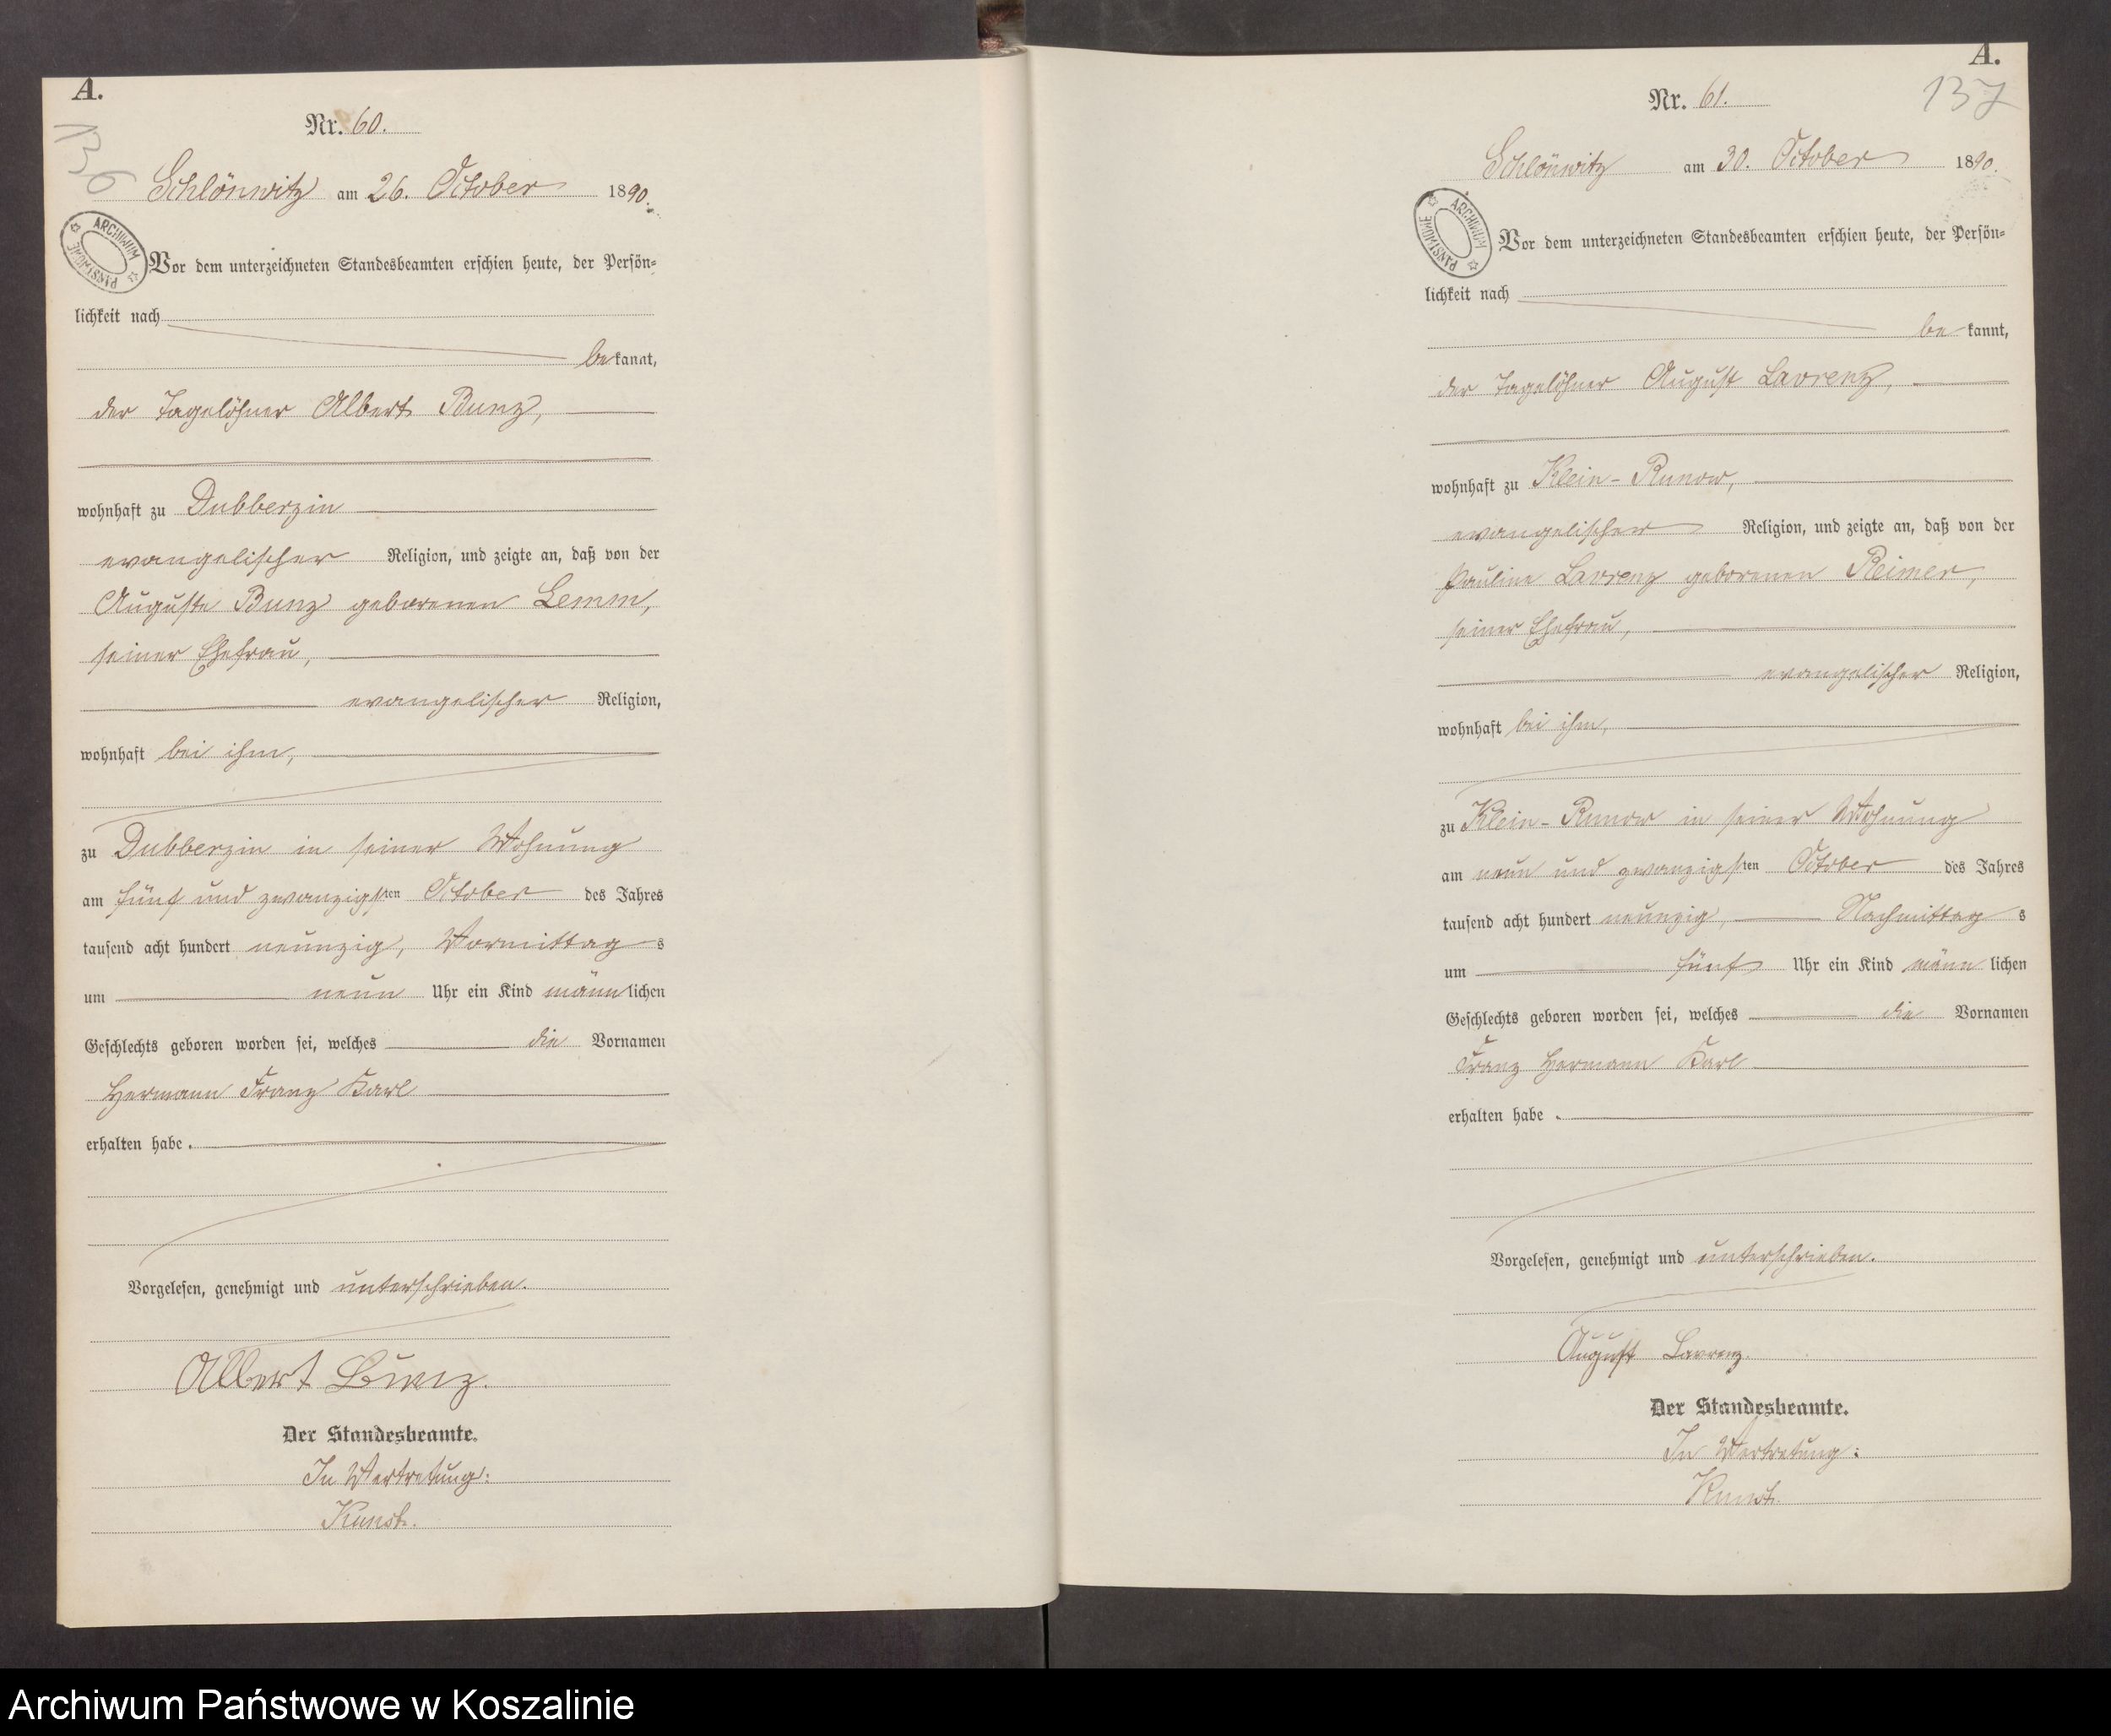 A.
136
Nr. 60.
Schlönwitz am 26. October 1890.
ARCHIWUM PAŃSTWOWE
Vor dem unterzeichneten Standesbeamten erschien heute, der Persön-
lichkeit nach
be kannt,
der Tagelöhner Albert Bunz,
wohnhaft zu Dubberzin
evangelischer Religion, und zeigte an, daß von der
Auguste Bunz geborenen Lemm,
seiner Ehefrau,
evangelischer Religion,
wohnhaft bei ihm,
zu Dubberzin in seiner Wohnung
am fünf und zwanzigsten October des Jahres
tausend acht hundert neunzig, Vormittag s
um neun Uhr ein Kind männ lichen
Geschlechts geboren worden sei, welches die Vornamen
Hermann Franz Karl
erhalten habe.
Vorgelesen, genehmigt und unterschrieben.
Albert Bunz.
Der Standesbeamte.
In Vertretung:
Kunst.
A.
137
Nr. 61.
Schlönwitz am 30. October 1890.
ARCHIWUM PAŃSTWOWE
Vor dem unterzeichneten Standesbeamten erschien heute, der Persön-
lichkeit nach
be kannt,
der Tagelöhner August Lavrenz,
wohnhaft zu Klein-Runow,
evangelischer Religion, und zeigte an, daß von der
Pauline Lavrenz geborenen Reimer,
seiner Ehefrau,
evangelischer Religion,
wohnhaft bei ihm,
zu Klein-Runow in seiner Wohnung
am neun und zwanzigsten October des Jahres
tausend acht hundert neunzig, Nachmittag s
um fünf Uhr ein Kind männ lichen
Geschlechts geboren worden sei, welches die Vornamen
Franz Hermann Karl
erhalten habe.
Vorgelesen, genehmigt und unterschrieben.
August Lavrenz.
Der Standesbeamte.
In Vertretung:
Kunst.
Archiwum Państwowe w Koszalinie